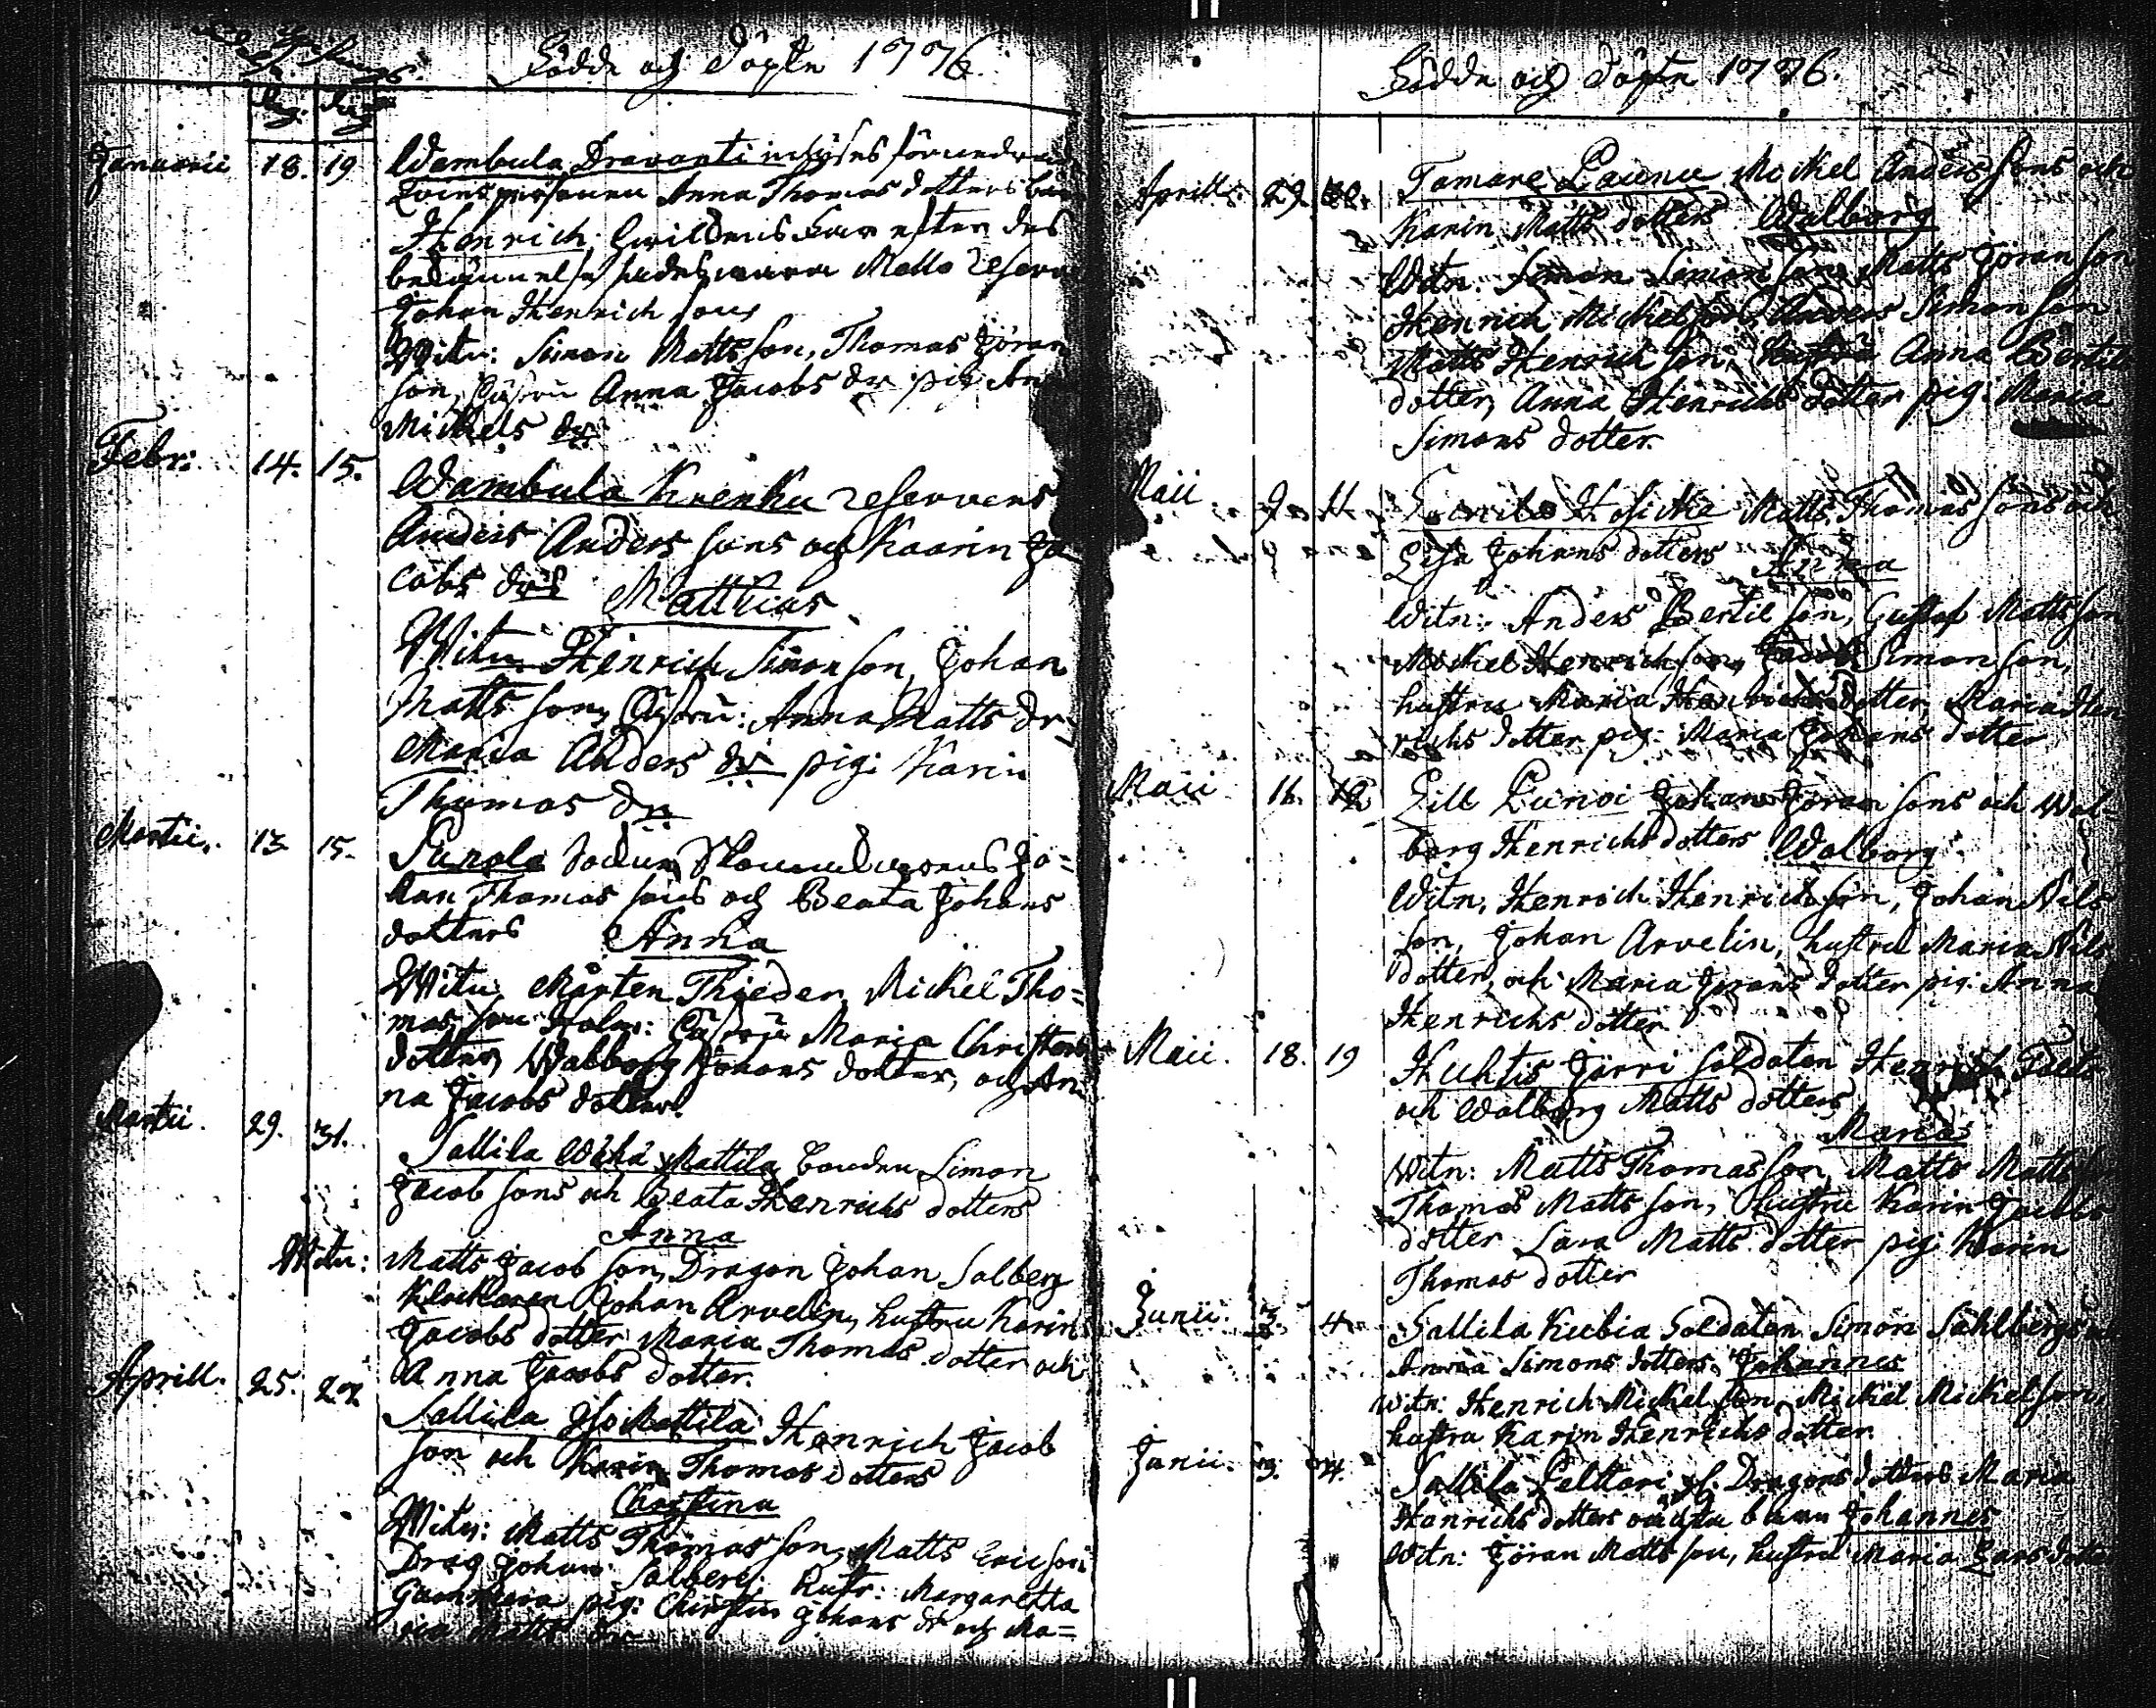 Födde och Döpte 1776.
Dag. Dag
Januarii 18. 19 Wambula Dravanti inhyses
Qvinspersonen Anna Thomas dotters
Henrich, hvilckens far efter des
Matts
Johan Henrich sons
Witn: Simon Matts son, Thomas Jöran
son, hustru Anna Jacobs dr pig. An
Mickels dr
Febr: 14. 15. Wambula Krenku reservens
Anders Anders sons och Kaarin Ja
cobs drs Matthias
Witn. Henrich Simon son, Johan
Matts son, hustru: Anna Matts dr
Maria Anders dr pig: Karin
Thomas dr
Martii. 13 15. Punola Sockne Skomakarens Jo=
han Thomas sons och Beata Johans
dotters Anna
Witn Mårten Thieder, Mickel Tho=
mas son Holm: hustru Maria Christers
dotter, Walborg Johans dotter, och An
na Jacobs dotter.
Martii. 29. 31. Sallila Wähä Mattila bonden Simon
Jacob sons och Beata Henrichs dotters
Anna
Witn: Matts Jacob son, Dragon Johan Salberg
Klockaren Johan Arvelin, hustru Karin
Jacobs dotter Maria Thomas dotter och
Anna Jacobs dotter.
Aprill. 25. 27 Sallila Iso Mattila Henrich Jacob
son och Karin Thomas dotters
Christina
Witn: Matts Thomas son, Matts Eric son
Drag Johan Salberg: hustr: Margaretta
pig: Chirstin Johans dr och Ma=
ria Matts dr
Födde och Döpte 1776.
Aprill. 29. Tamare Launu Mickel Anders sons och
Karin Matts dotters Walborg
Witn: Simon Simon son, Matts Jöran son
Henrich Mickel son, Anders Simon son
Matts Henrich son, hustru Anna Bertils
dotter, Anna Henrichs dotter pig: Maria
Simons dotter.
Maii 9 11. Matts Thomas sons och
Lisa Johans dotters Anna
Witn: Anders Bertil son, Gustaf Matts son
Mickel Henrich son, Jacob Simon son,
hustru Maria Henrichs dotter, Maria Hen
richs dotter pig: Maria Johans dotter
Maii 16. Johan Jöran sons och Wal
borg Henrichs dotters Walborg
Witn, Henrich Henrich son, Johan Nils
son, Johan Arvelin, hustru Maria Nils
dotter, och Maria Jörans dotter pig: Anna
Henrichs dotter
Maii. 18. 19 Huhtis Jörri Soldaten Henrich
och Walborg Matts dotters
Maria
Witn: Matts Thomas son, Matts Matts
Thomas Matts son, Hustru Karin Jacobs
dotter Sara Matts dotter pig Karin
Thomas dotter
Junii. 3. 4 Sallila Kubia Soldaten Simon Sahlbergs
Anna Simons dotters Johannes
Witn: Henrich Mickel son, Mickel Mickel son,
hustru Karin Henrichs dotter
Junii. 3. 4. Sallila Dragons dotters Maria
Henrichs dotters oächta barn Johannes
Witn: Jöran Matts son, hustru Maria Lars dotter